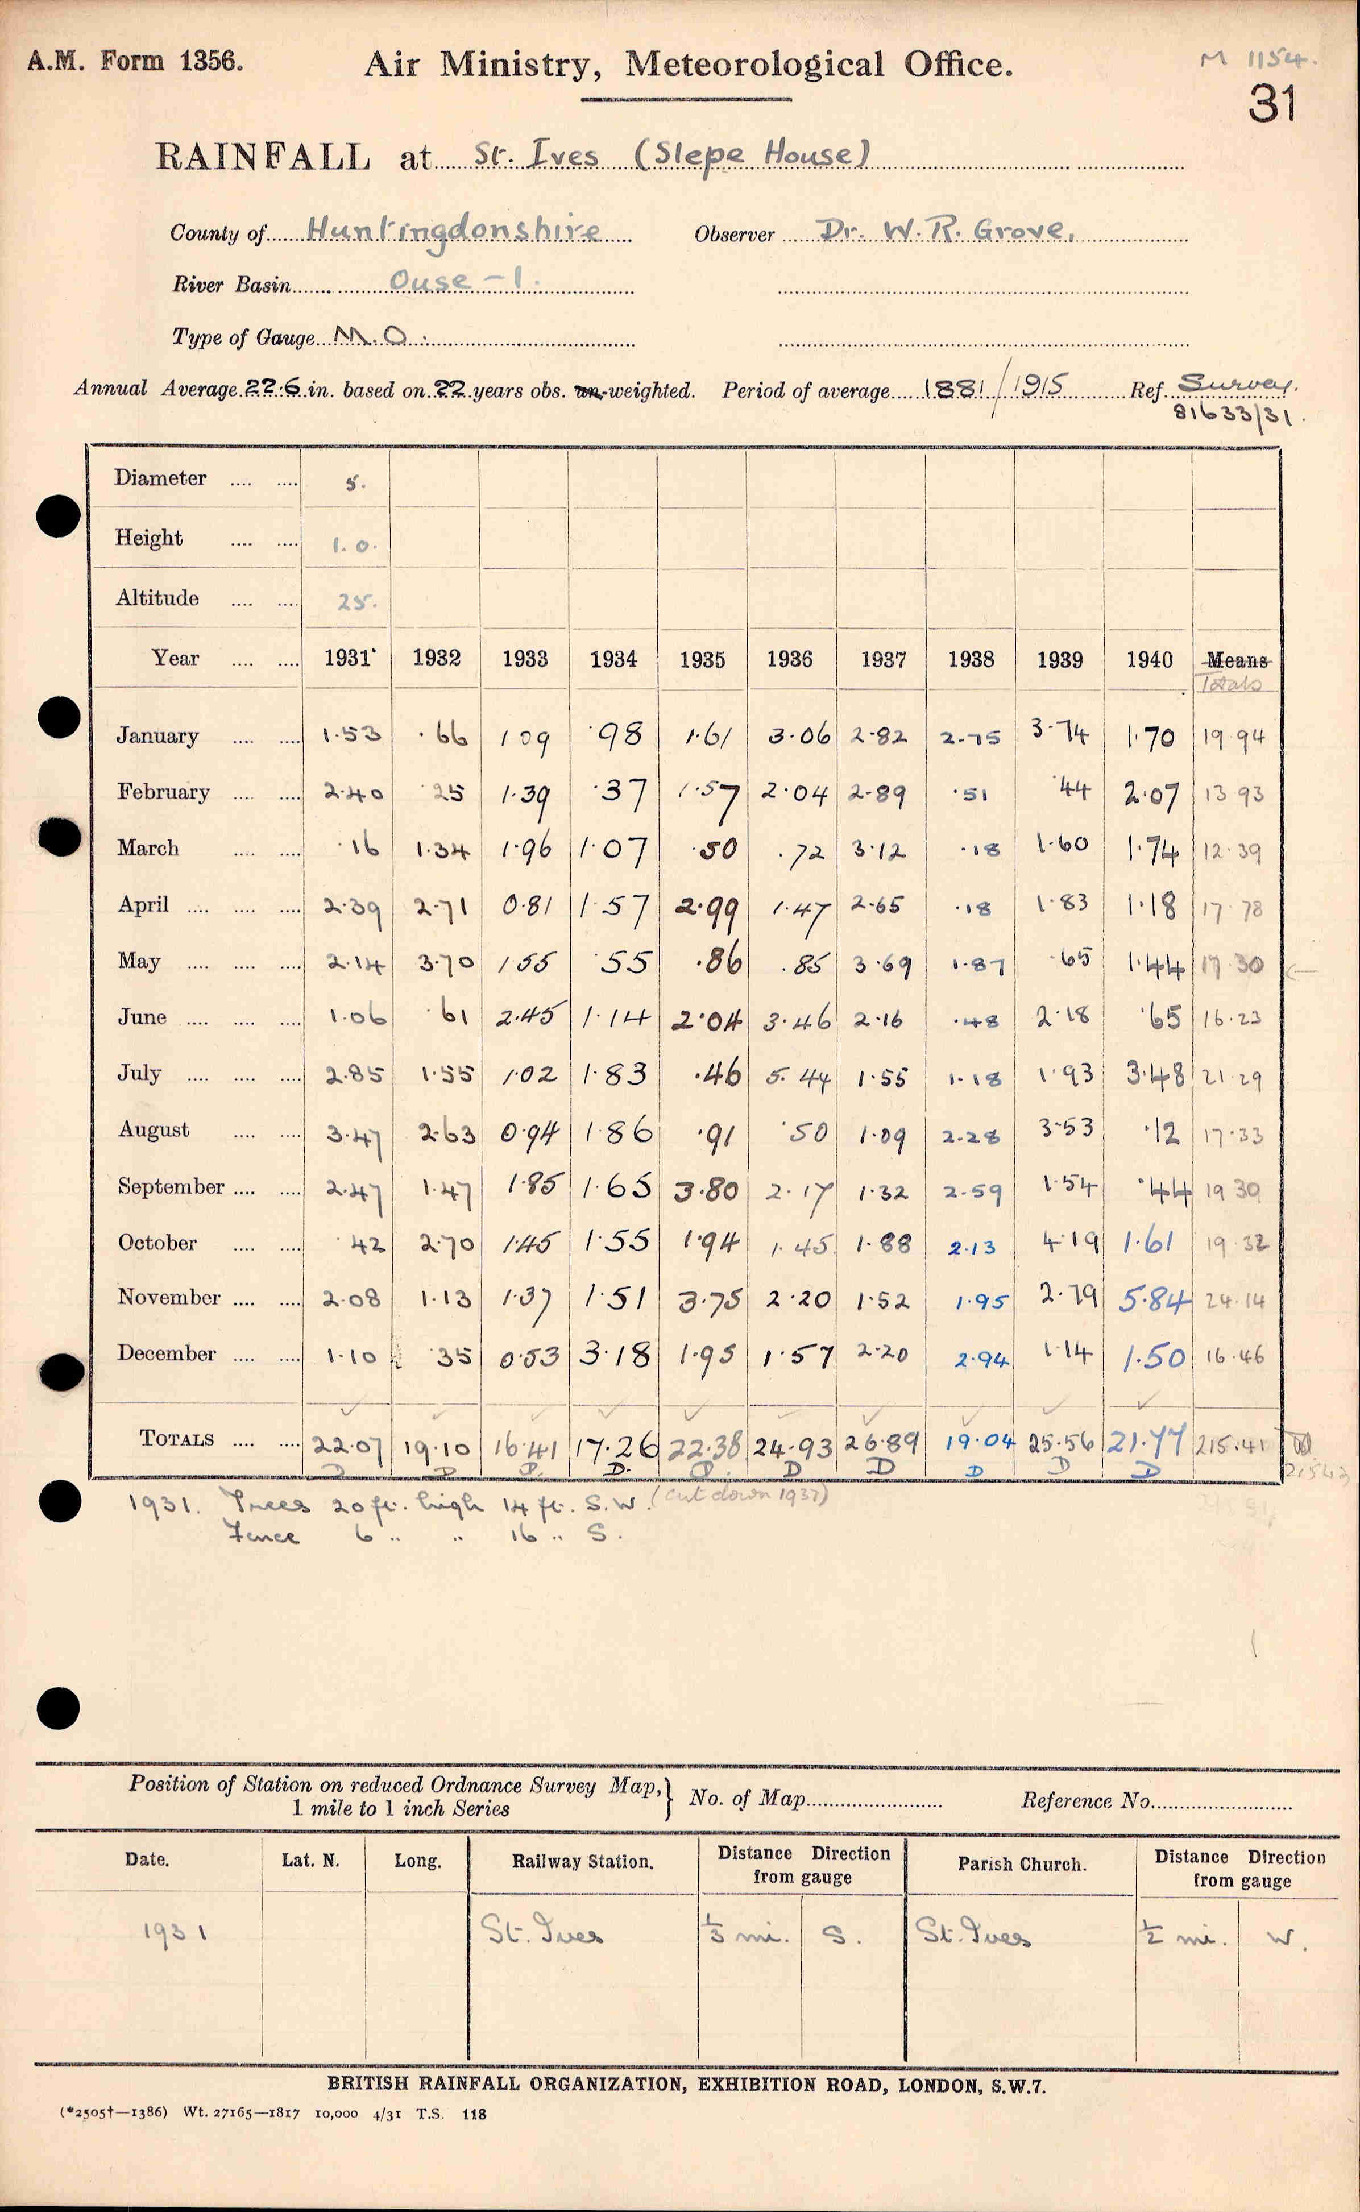 A.M. Form 1356. Air Ministry, Meteorological Office. M 1154.
31
RAINFALL at St. Ives (Slepe House)
County of Huntingdonshire Observer Dr. W. R. Grove.
River Basin Ouse - 1.
Type of Gauge M.O.
Annual Average 22.6 in. based on 22 years obs. un-weighted. Period of average 1881/1915 Ref. Survey.
81633/31.
Diameter 5.
Height 1.0.
Altitude 25.
Year 1931 1932 1933 1934 1935 1936 1937 1938 1939 1940 Means
Totals
January 1.53 .66 1 09 .98 1.61 3.06 2.82 2.75 3.74 1.70 19.94
February 2.40 .25 1.39 .37 1.57 2.04 2.89 .51 .44 2.07 13 93
March .16 1.34 1.96 1.07 .50 .72 3.12 .18 1.60 1.74 12.39
April 2.39 2.71 0.81 1.57 2.99 1.47 2.65 .18 1.83 1.18 17.78
May 2.14 3.70 1.55 .55 .86 .85 3.69 1.87 .65 1.44 17.30 ←
June 1.06 .61 2.45 1.14 2.04 3.46 2.16 .48 2.18 .65 16.23
July 2.85 1.55 1.02 1.83 .46 5.44 1.55 1.18 1.93 3.48 21.29
August 3.47 2.63 0.94 1.86 .91 .50 1.09 2.28 3.53 .12 17.33
September 2.47 1.47 1.85 1.65 3.80 2.17 1.32 2.59 1.54 .44 19 30
October .42 2.70 1.45 1.55 1.94 1.45 1.88 2.13 4.19 1.61 19.32
November 2.08 1.13 1.37 1.51 3.75 2.20 1.52 1.95 2.79 5.84 24.14
December 1.10 .35 0.53 3.18 1.95 1.57 2.20 2.94 1.14 1.50 16.46
TOTALS 22.07 19.10 16.41 17.26 22.38 24.93 26.89 19.04 25.56 21.77 215.41
D D D. D. D. D D D D D
1931. Trees 20 ft. high 14 ft. S.W. (cut down 1937)
Fence 6 " " 16 " S.
Position of Station on reduced Ordnance Survey Map, } No. of Map Reference No.
1 mile to 1 inch Series
Date. Lat. N. Long. Railway Station. Distance Direction from gauge Parish Church. Distance Direction from gauge
1931 St. Ives 1/3 mi. S. St. Ives 1/2 mi. W.
BRITISH RAINFALL ORGANIZATION, EXHIBITION ROAD, LONDON, S.W.7.
(*2505†—1386) Wt. 27165—1817 10,000 4/31 T.S. 118